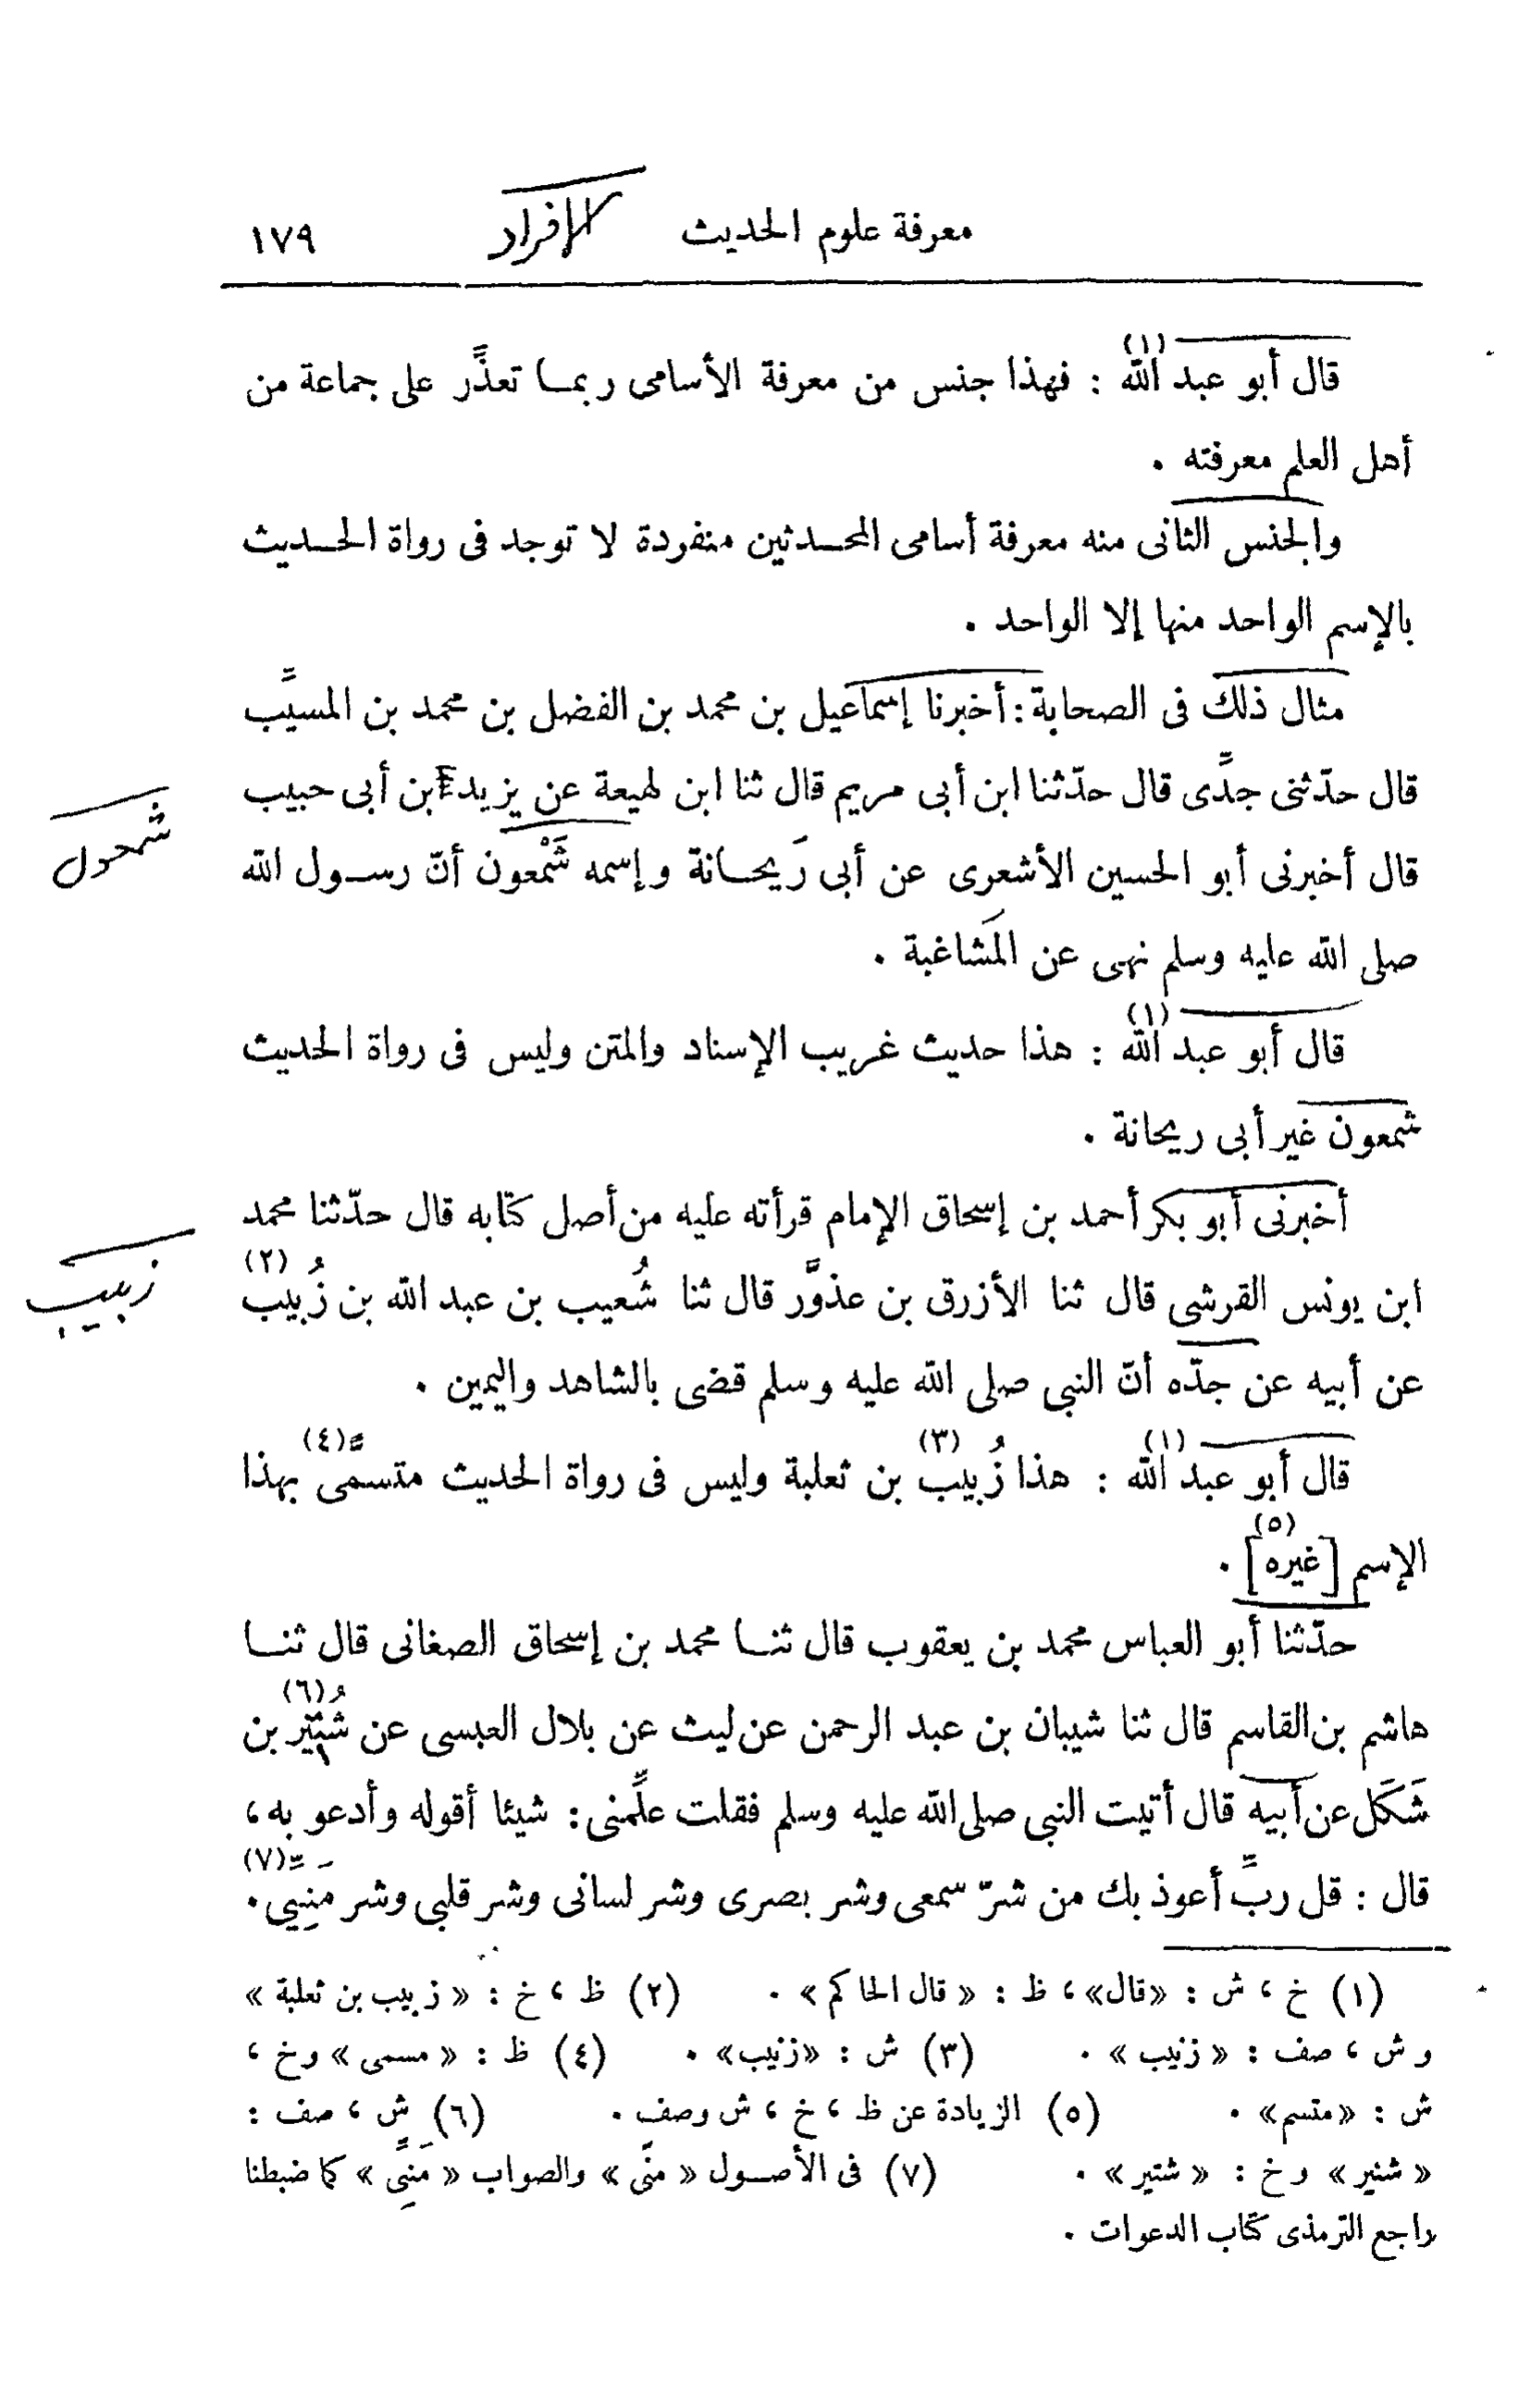 معرفة علوم الحديث الإفراد ١٧٩
قال أبو عبد الله (١) : فهذا جنس من معرفة الأسامى ربمـا تعذَّر على جماعة من
أهل العلم معرفته .
والجنس الثانى منه معرفة أسامى المحـدثين منفردة لا توجد فى رواة الحـديث
بالإسم الواحد منها إلا الواحد .
مثال ذلك فى الصحابة : أخبرنا إسماعيل بن محمد بن الفضل بن محمد بن المسيَّب
قال حدّثنى جدِّى قال حدّثنا ابن أبى مريم قال ثنا ابن لهيعة عن يزيد بن أبى حبيب
شمعون
قال أخبرنى أبو الحسين الأشعرى عن أبى رَيحـانة وإسمه شَمْعون أنّ رسـول الله
صلى الله عليه وسلم نهى عن المَشاغبة .
قال أبو عبد الله (١) : هذا حديث غريب الإسناد والمتن وليس فى رواة الحديث
شمعون غير أبى ريحانة .
أخبرنى أبو بكر أحمد بن إسحاق الإمام قرأته عليه من أصل كتابه قال حدّثنا محمد
زبيب
ابن يونس القرشى قال ثنا الأزرق بن عذوَّر قال ثنا شُعيب بن عبد الله بن زُبيب (٢)
عن أبيه عن جدّه أنّ النبى صلى الله عليه وسلم قضى بالشاهد واليمين .
قال أبو عبد الله (١) : هذا زُبيب (٣) بن ثعلبة وليس فى رواة الحديث متسمًّى (٤) بهذا
الإسم [غيره] (٥) .
حدّثنا أبو العباس محمد بن يعقوب قال ثنـا محمد بن إسحاق الصغانى قال ثنـا
هاشم بن القاسم قال ثنا شيبان بن عبد الرحمن عن ليث عن بلال العبسى عن شُتَيْر (٦) بن
شَكَل عن أبيه قال أتيت النبى صلى الله عليه وسلم فقلت علِّمنى : شيئا أقوله وأدعو به ،
قال : قل ربِّ أعوذ بك من شرّ سمعى وشر بصرى وشر لسانى وشر قلبى وشر مَنِيِّي (٧) .
(١) خ ، ش : «قال» ، ظ : « قال الحاكم » . (٢) ظ ، خ : « زبيب بن ثعلبة »
و ش ، صف : « زنيب » . (٣) ش : «زنيب» . (٤) ظ : « مسمى » و خ ،
ش : « متسم » . (٥) الزيادة عن ظ ، خ ، ش وصف . (٦) ش ، صف :
« شنير » و خ : « شتير » . (٧) فى الأصـول « منّى » والصواب « مَنِيِّى » كما ضبطنا
راجع الترمذى كتاب الدعوات .